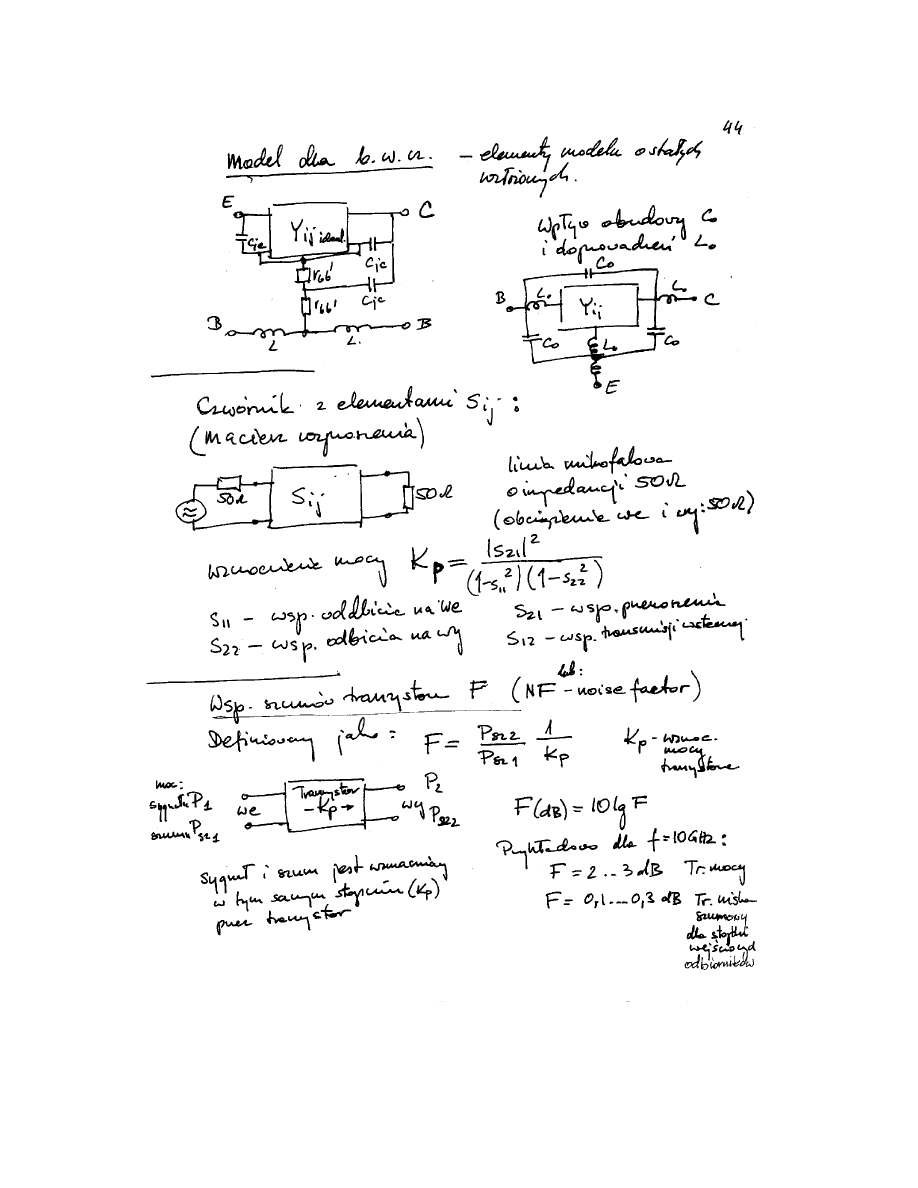 44
Model dla b.w.cz. – elementy modelu o stałych
E
C
Yij ideal.
Cje
Cjc
rbb'
Cjc
rbb'
B
B
L
L
Wpływ obudowy Co
i doprowadzeń Lo
Co
B
Lo
Yij
Lo
C
Co
Lo
Co
E
Czwórnik z elementami Sij :
(macierz rozproszenia)
50Ω
Sij
50Ω
linia mikrofalowa
o impedancji 50Ω
(obciążenie we i wy: 50Ω)
wzmocnienie mocy Kp = |S21|² / (1-s11²)(1-s22²)
S11 – wsp. oddbicia na We
S21 – wsp. przenoszenia
S22 – wsp. odbicia na wy
S12 – wsp. transmisji wstecznej
lub:
Wsp. szumów tranzystora F (NF – noise factor)
Definiowany jako : F = Psz2/Psz1 1/Kp
Kp – wzmoc.
mocy
tranzystora
moc:
sygnału P1
szumu Psz1
we
Tranzystor
– Kp →
wy
P2
Psz2
F(dB) = 10 lg F
Przykładowo dla f=10GHz :
F = 2 .. 3 dB Tr. mocy
F = 0,1 ... 0,3 dB Tr. nisko
szumowy
dla stopni
wejściowych
odbiorników
Sygnał i szum jest wzmacniany
w tym samym stopniu (Kp)
przez tranzystor